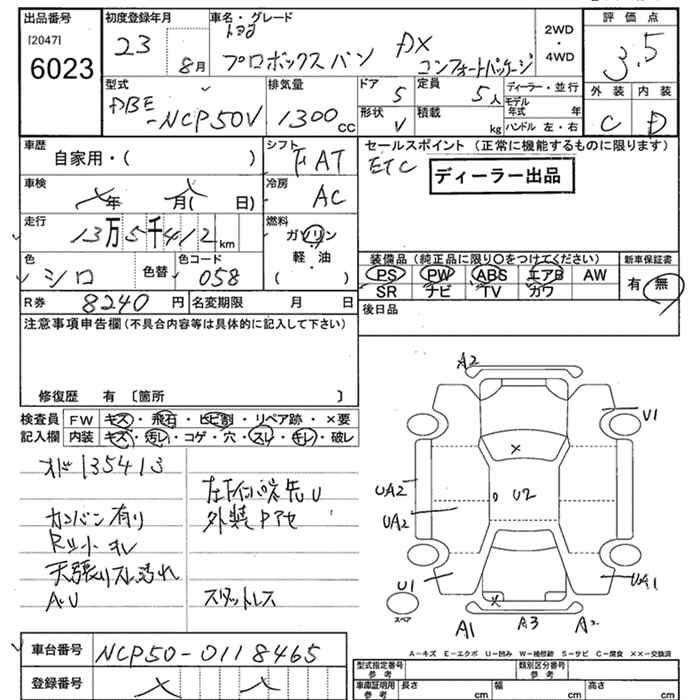 出品番号 初度登録年月 車名・グレード 評価点
[2047]
6023
23 8月
トヨタ
プロボックスバン DX
コンフォートパッケージ
2WD
・
4WD
3.5
型式 排気量 ドア 5 定員 5人 ディーラー・並行 外装 内装
DBE
-NCP50V 1300cc
形状 V 積載 kg
モデル年式 年
ハンドル 左・右
C D
車歴 シフト セールスポイント (正常に機能するものに限ります)
自家用・( ) FAT ETC ディーラー出品
車検 年 月( 日) 冷房 AC
走行 燃料
13万5千412km ガソリン
・
軽・油
( )
色 色替 色コード
シロ 058
装備品 (純正品に限り〇をつけてください) 新車保証書
PS PW ABS エアB AW
SR ナビ TV カワ
有 無
R券 8240円 名変期限 月 日
後日品
注意事項申告欄 (不具合内容等は具体的に記入して下さい)
修復歴 有 〔箇所 〕
検査員 FW キズ・飛石・ヒビ割・リペア跡・×要
記入欄 内装 キズ・汚レ・コゲ・穴・スレ・キレ・破レ
135413
カンバン有り
天張りスレ汚れ
A・U
外装Pアセ
スタットレス
A2
U1
UA2
UA2
U2
U1
A1
A3
スペア
A-キズ E-エクボ U-凹み W-補修跡 S-サビ C-腐食 ××-交換済
車台番号 NCP50-0118465
登録番号
型式指定番号 参考 類別区分番号 参考
車庫証明用 参考 長さ cm 幅 cm 高さ cm